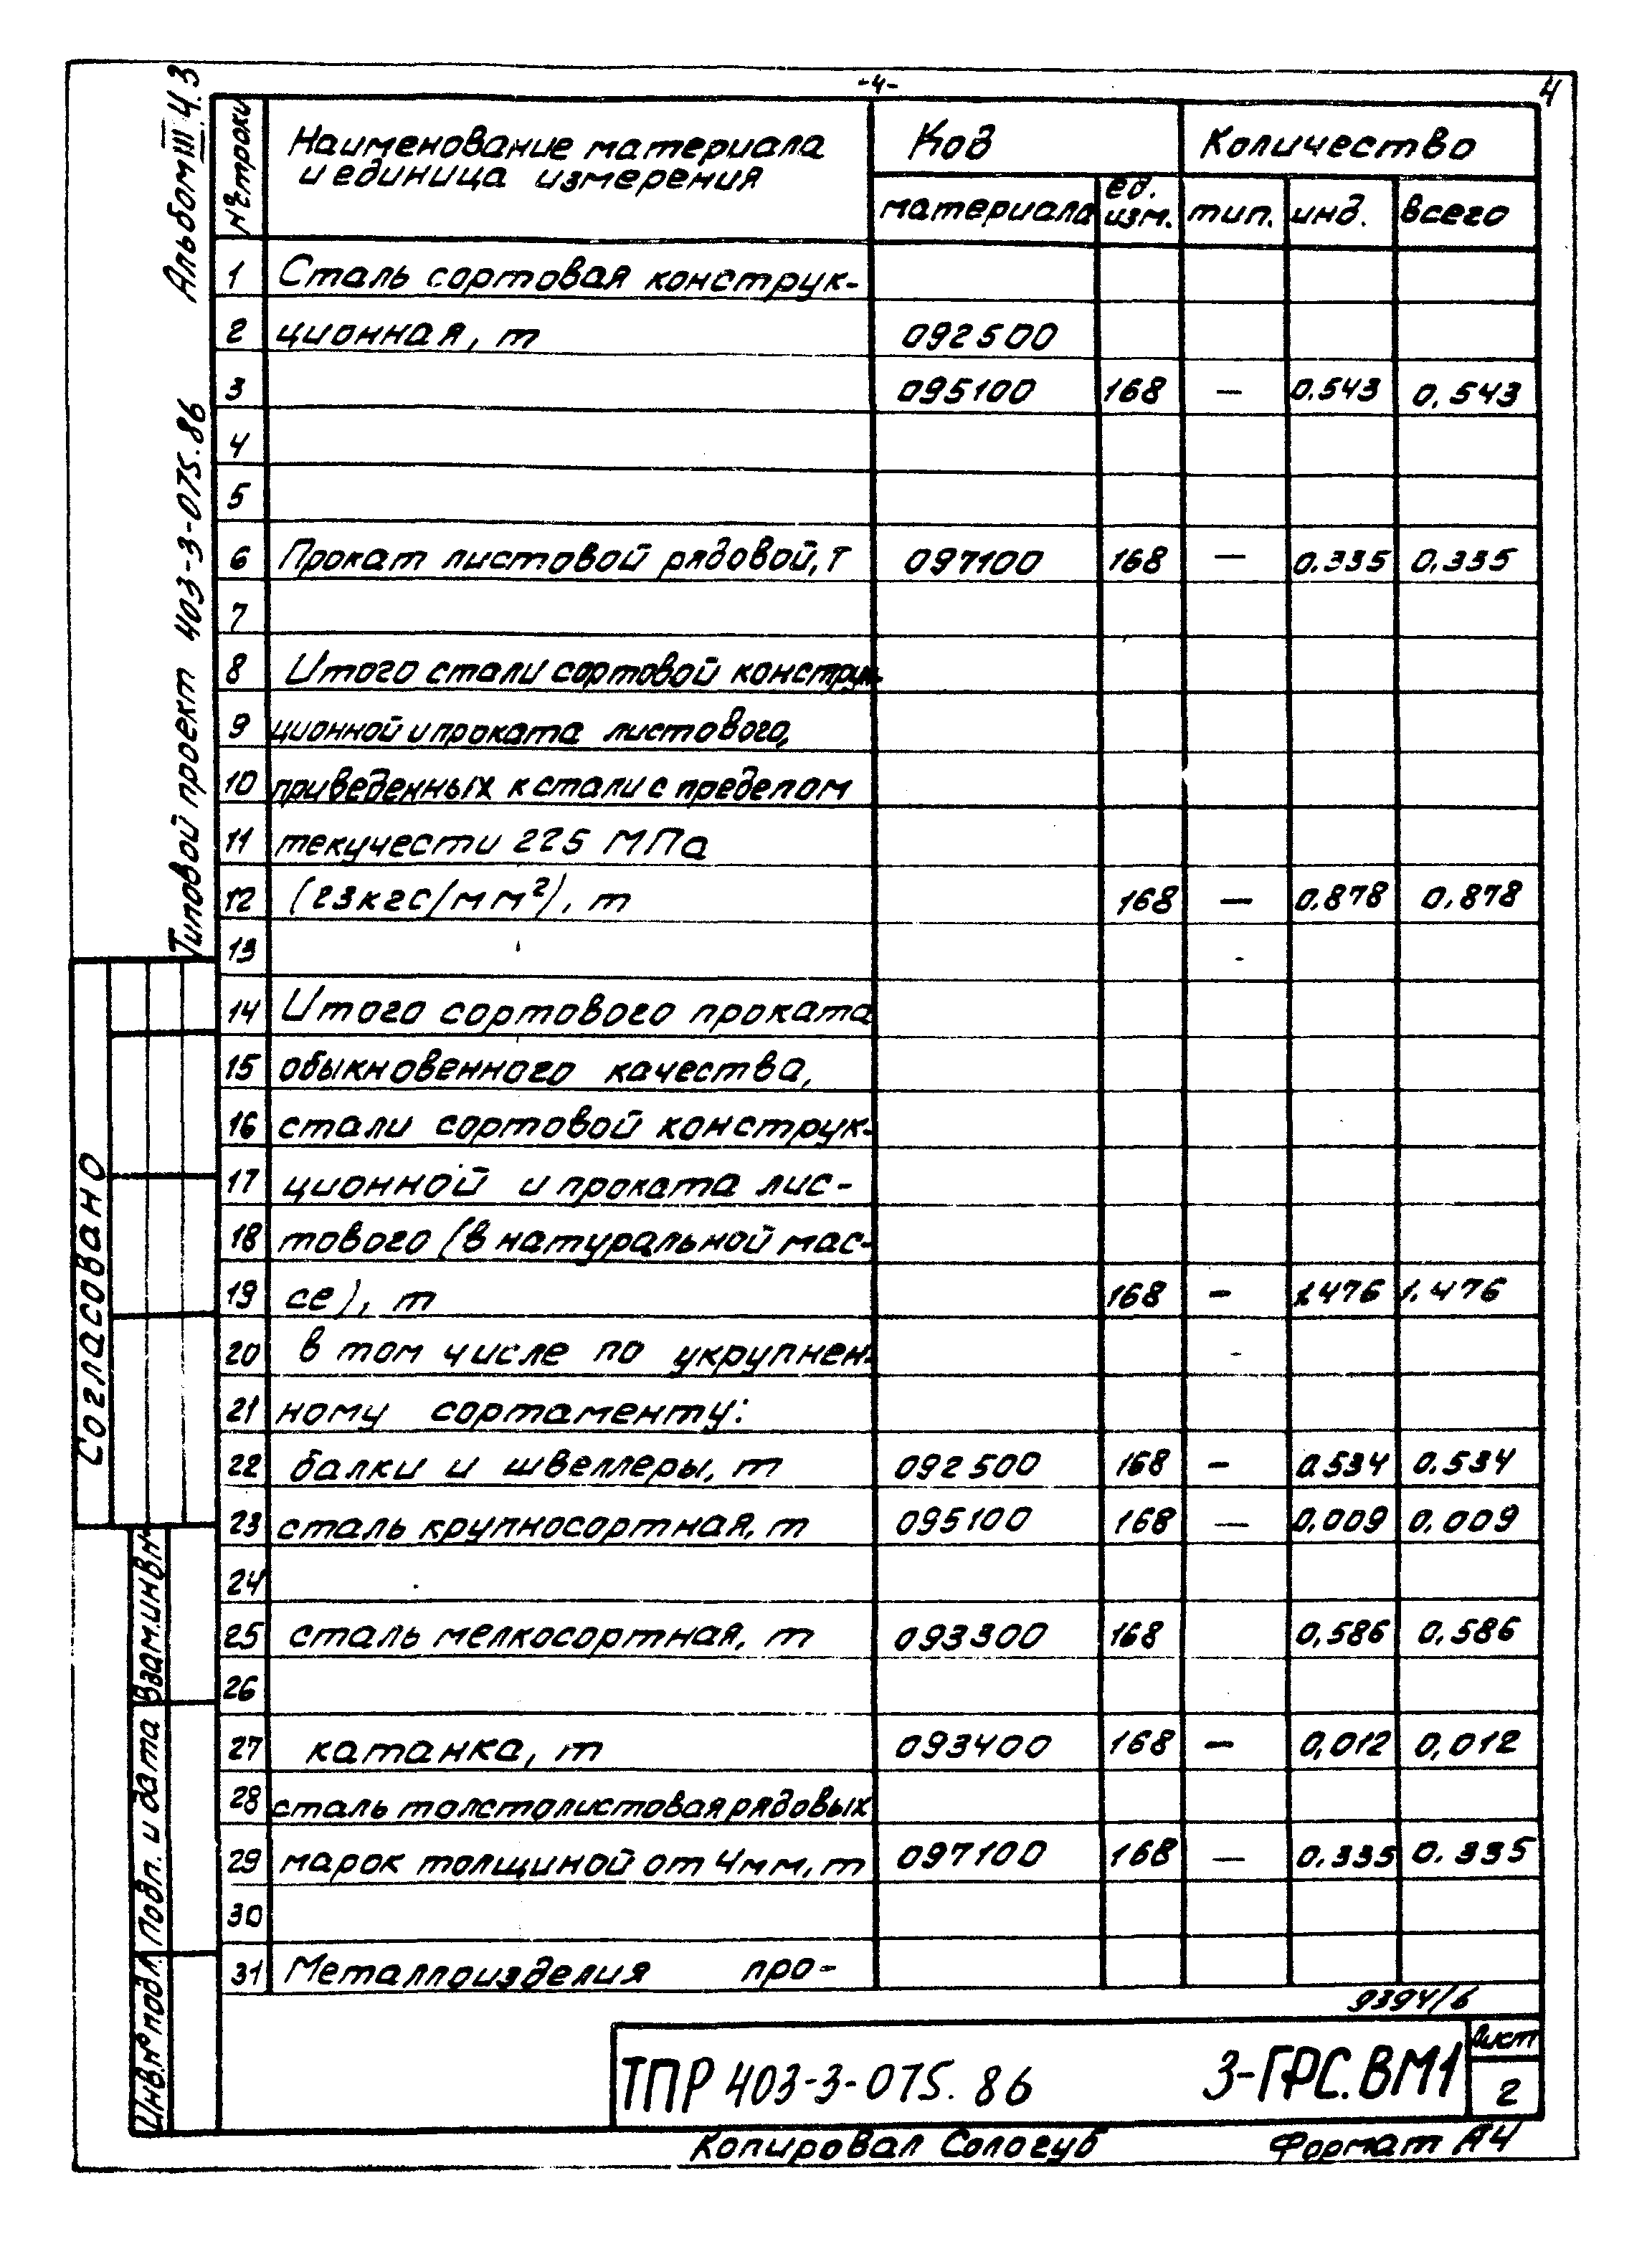 -4-
4
Альбом III Ч.3
Типовой проект 403-3-075.86
№ строки
Наименование материала
и единица измерения
Код
Количество
материала
ед.
изм.
тип.
инд.
всего
1 Сталь сортовая конструк-
2 ционная, т 092500
3 095100 168 — 0.543 0.543
4
5
6 Прокат листовой рядовой, т 097100 168 — 0.335 0.335
7
8 Итого стали сортовой конструк-
9 ционной и проката листового,
10 приведенных к стали с пределом
11 текучести 225 МПа
12 (23кгс/мм²), т 168 — 0.878 0.878
13
14 Итого сортового проката
15 обыкновенного качества,
16 стали сортовой конструк-
17 ционной и проката лис-
18 тового (в натуральной мас-
19 се), т 168 — 1.476 1.476
20 в том числе по укрупнен-
21 ному сортаменту:
22 балки и швеллеры, т 092500 168 — 0.534 0.534
23 сталь крупносортная, т 095100 168 — 0,009 0,009
24
25 сталь мелкосортная, т 093300 168 0,586 0,586
26
27 катанка, т 093400 168 — 0,012 0,012
28 сталь толстолистовая рядовых
29 марок толщиной от 4мм, т 097100 168 — 0.335 0.335
30
31 Металлоизделия про-
Согласовано
Взам.инв№
Подп. и дата
Инв.№ подл.
9394/6
ТПР 403-3-075.86
3-ГРС.ВМ1
Лист
2
Копировал Сологуб
Формат А4